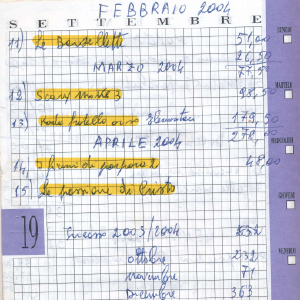 FEBBRAIO 2004
SETTEMBRE
11) Le Barzellette 51,00
26,50
77,50
MARZO 2004
12) Scary Movie 3 98,50
13) Koda fratello orso 179,50
278,00
APRILE 2004
14) I fiumi di porpora 2 48,00
15) La passione di Cristo
19
Incasso 2003/2004
ottobre 232
novembre 71
Dicembre 363
LUNEDÌ
MARTEDÌ
MERCOLEDÌ
GIOVEDÌ
VENERDÌ